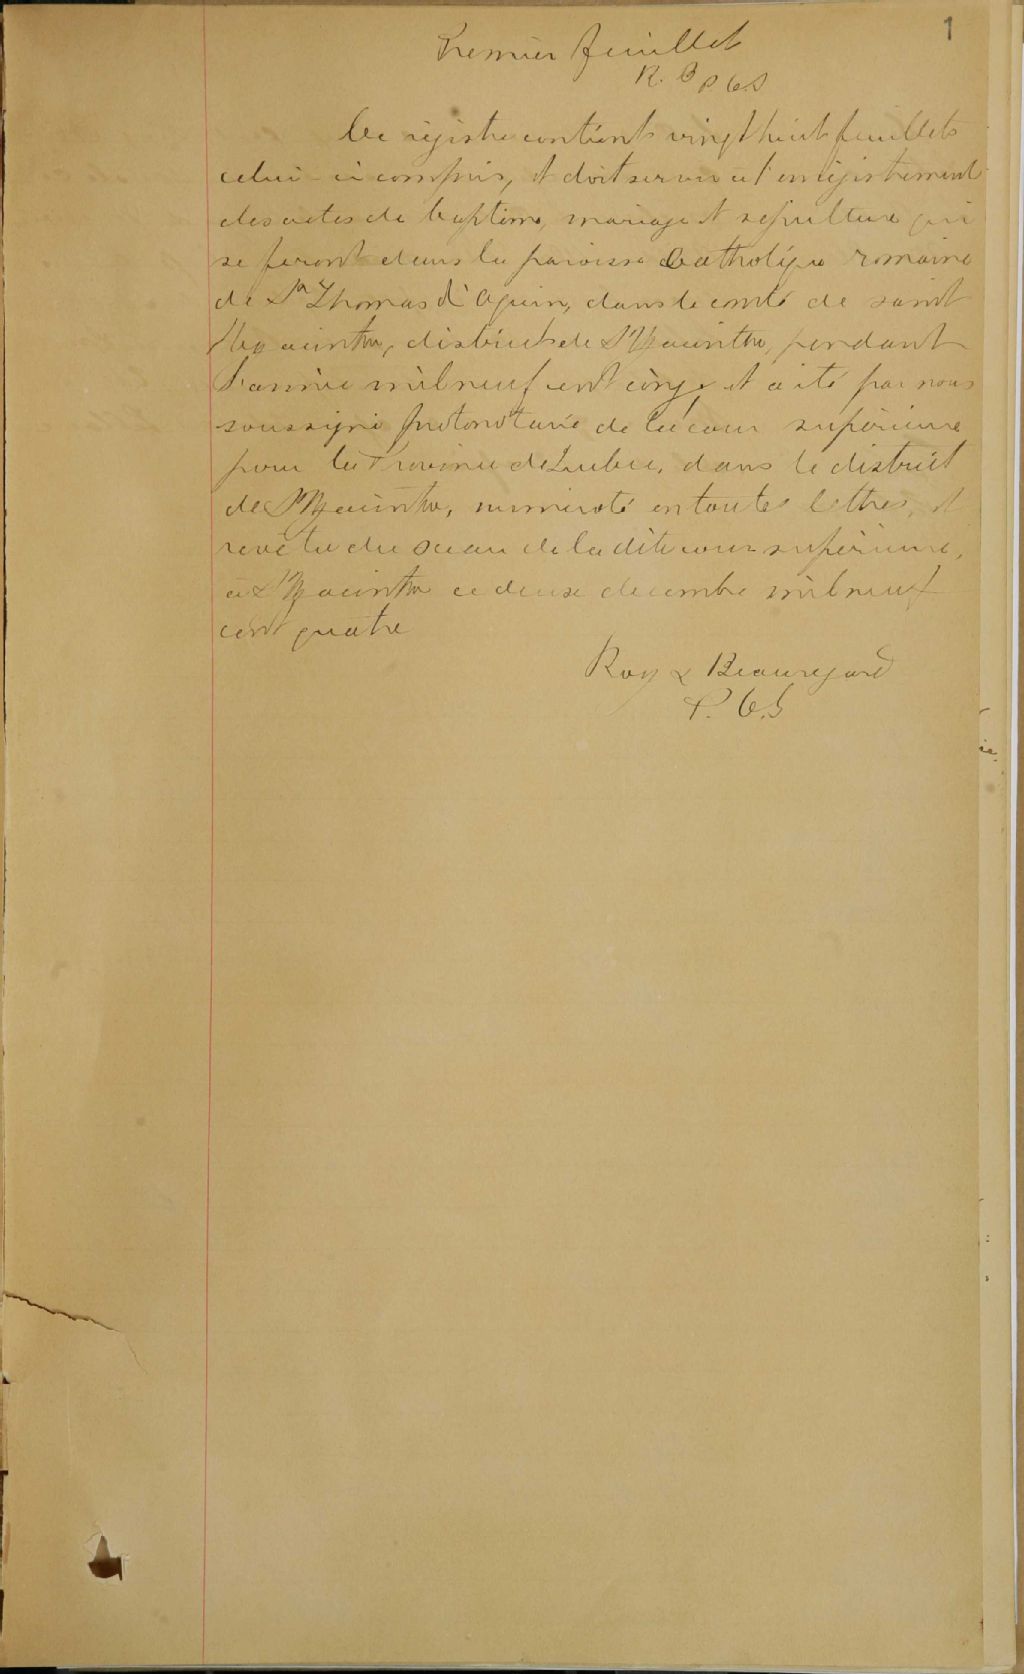 1
Premier feuillet
R. B P. C. S
Ce registre contient vingt huit feuillets
celui-ci compris, et doit servir à l'enregistrement
des actes de baptême, mariage et sépulture qui
se feront dans la paroisse Catholique romaine
de St Thomas d'Aquin, dans le comté de saint
Hyacinthe, district de St Hyacinthe, pendant
l'année mil neuf cent cinq, et a été par nous
soussigné protonotaire de la cour supérieure
pour la Province de Québec, dans le district
de St Hyacinthe, numéroté en toutes lettres, et
revêtu du sceau de la dite cour supérieure,
à St Hyacinthe ce douze decembre mil neuf
cent quatre
Roy & Beauregard
P. C. S